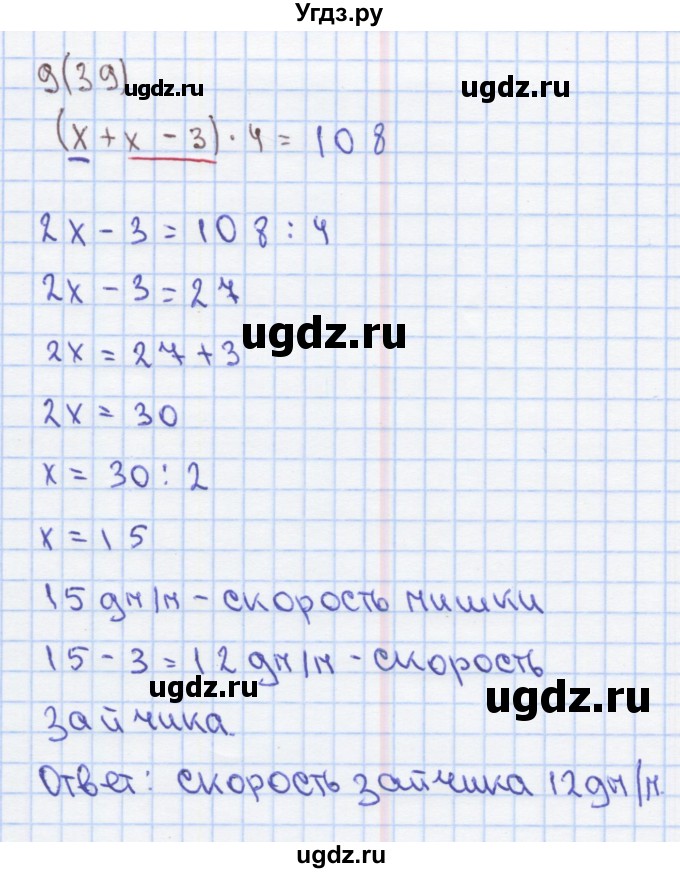 Угдз.ру
9(39)
ugdz.ru
ugdz.ru
(x + x - 3) · 4 = 108
2x - 3 = 108 : 4
2x - 3 = 27
ugdz.ru
2x = 27 + 3
2x = 30
x = 30 : 2
x = 15
15 дм/м - скорость мишки
15 - 3 = 12 дм/м - скорость
ugdz.ru
ugdz.ru
зайчика.
Ответ: скорость зайчика 12 дм/м.
ugdz.ru